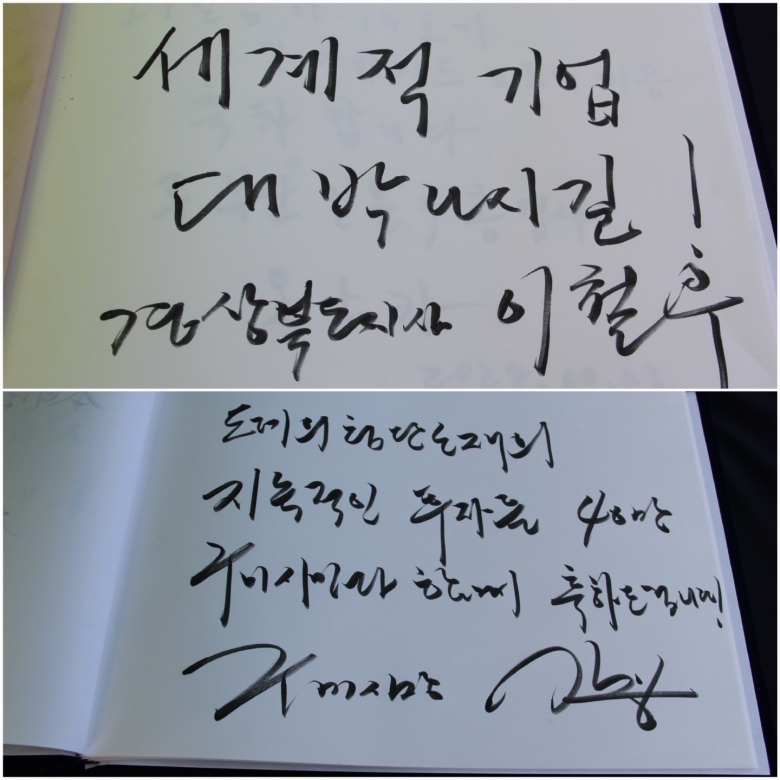 세계적 기업
대박나시길!
경상북도지사 이철우
도레이 첨단소재의
지속적인 투자를 40만
구미시민과 함께 축하드립니다!
구미시장